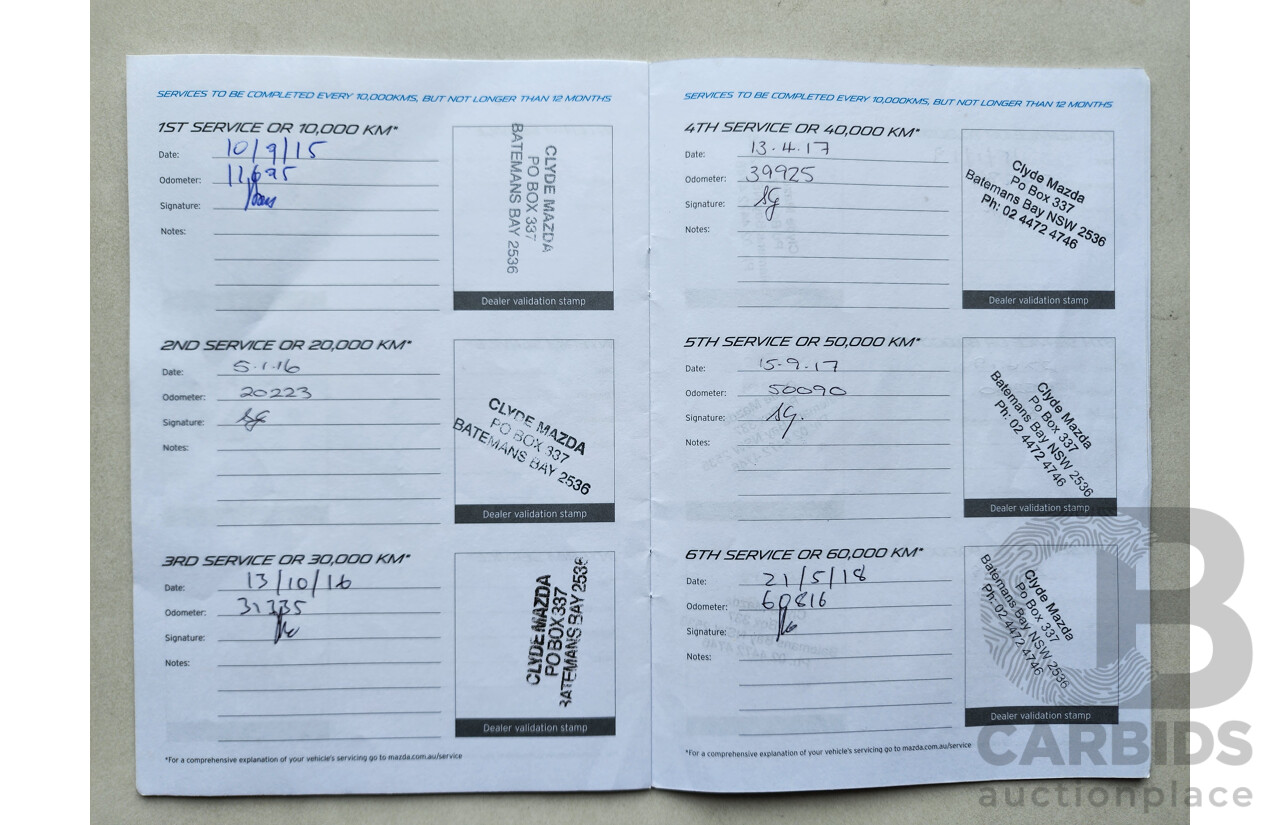 SERVICES TO BE COMPLETED EVERY 10,000KMS, BUT NOT LONGER THAN 12 MONTHS
1ST SERVICE OR 10,000 KM*
Date: 10/9/15
Odometer: 11,695
Signature:
Notes:
CLYDE MAZDA
PO BOX 337
BATEMANS BAY 2536
Dealer validation stamp
2ND SERVICE OR 20,000 KM*
Date: 5.1.16
Odometer: 20223
Signature: SG
Notes:
CLYDE MAZDA
PO BOX 337
BATEMANS BAY 2536
Dealer validation stamp
3RD SERVICE OR 30,000 KM*
Date: 13/10/16
Odometer:
Signature:
Notes:
CLYDE MAZDA
PO BOX 337
BATEMANS BAY 2536
Dealer validation stamp
*For a comprehensive explanation of your vehicle's servicing go to mazda.com.au/service
SERVICES TO BE COMPLETED EVERY 10,000KMS, BUT NOT LONGER THAN 12 MONTHS
4TH SERVICE OR 40,000 KM*
Date: 13.4.17
Odometer: 39925
Signature: SG
Notes:
Clyde Mazda
Po Box 337
Batemans Bay NSW 2536
Ph: 02 4472 4746
Dealer validation stamp
5TH SERVICE OR 50,000 KM*
Date: 15-9.17
Odometer: 50090
Signature: SG.
Notes:
Clyde Mazda
Po Box 337
Batemans Bay NSW 2536
Ph: 02 4472 4746
Dealer validation stamp
6TH SERVICE OR 60,000 KM*
Date: 21/5/18
Odometer: 60816
Signature:
Notes:
Clyde Mazda
Po Box 337
Batemans Bay NSW 2536
Ph: 02 4472 4746
Dealer validation stamp
*For a comprehensive explanation of your vehicle's servicing go to mazda.com.au/service
CB
CARBIDS
auctionplace